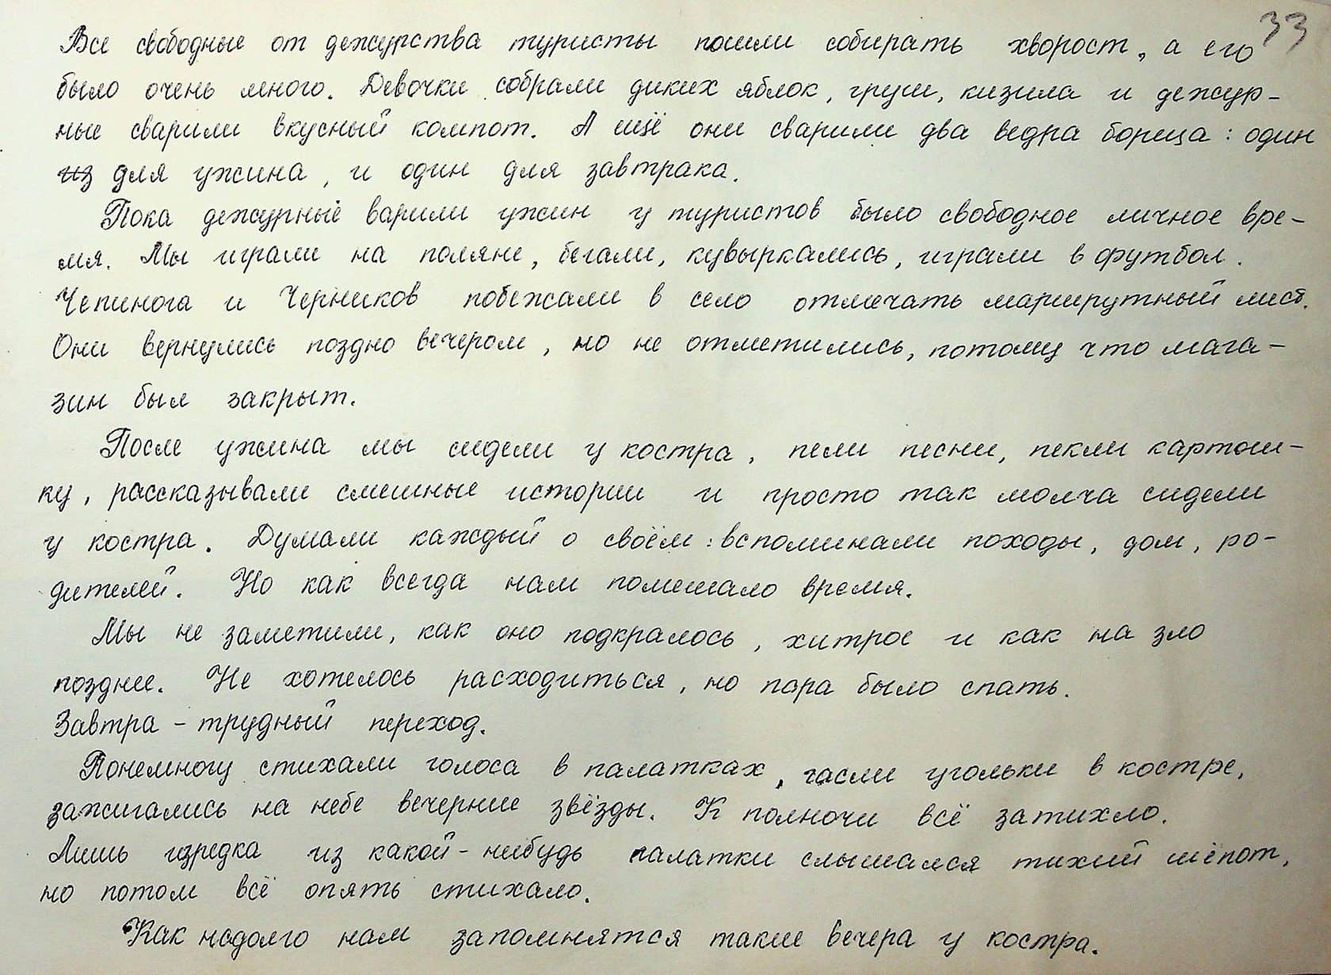 Все свободные от дежурства туристы пошли собирать хворост, а его 33
было очень много. Девочки собрали диких яблок, груш, кизила и дежур-
ные сварили вкусный компот. А ещё они сварили два ведра борща: один
из для ужина, и один для завтрака.
Пока дежурные варили ужин у туристов было свободное личное вре-
мя. Мы играли на поляне, бегали, кувыркались, играли в футбол.
Чепинога и Черников побежали в село отмечать маршрутный лист.
Они вернулись поздно вечером, но не отметились, потому что мага-
зин был закрыт.
После ужина мы сидели у костра, пели песни, пекли картош-
ку, рассказывали смешные истории и просто так молча сидели
у костра. Думали каждый о своём: вспоминали походы, дом, ро-
дителей. Но как всегда нам помешало время.
Мы не заметили, как оно подкралось, хитрое и как на зло
позднее. Не хотелось расходиться, но пара было спать.
Завтра - трудный переход.
Понемногу стихали голоса в палатках, гасли угольки в костре,
зажигались на небе вечерние звёзды. К полночи всё затихло.
Лишь изредка из какой-нибудь палатки слышался тихий шёпот,
но потом всё опять стихало.
Как надолго нам запомнятся такие вечера у костра.